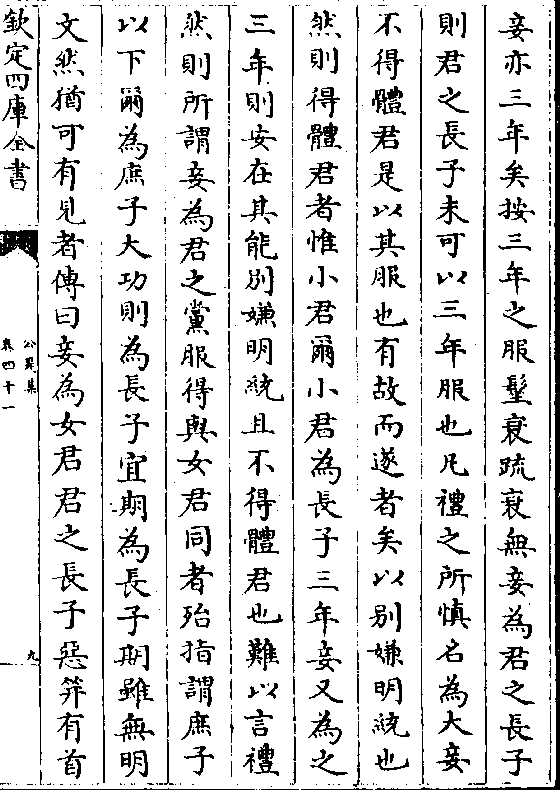 妾亦三年矣按三年之服髽衰疏衰無妾為君之長子
則君之長子未可以三年服也凡禮之所慎名為大妾
不得體君是以其服也有故而遂者矣以别嫌明統也
然則得體君者惟小君爾小君為長子三年妾又為之
三年則安在其能别嫌明統且不得體君也難以言禮
然則所謂妾為君之黨服得與女君同者殆指謂庶子
以下爾為庶子大功則為長子宜期為長子期雖無明
文然猶可有見者傳曰妾為女君君之長子惡笄有首
欽定四庫全書
公是集
卷四十一
九